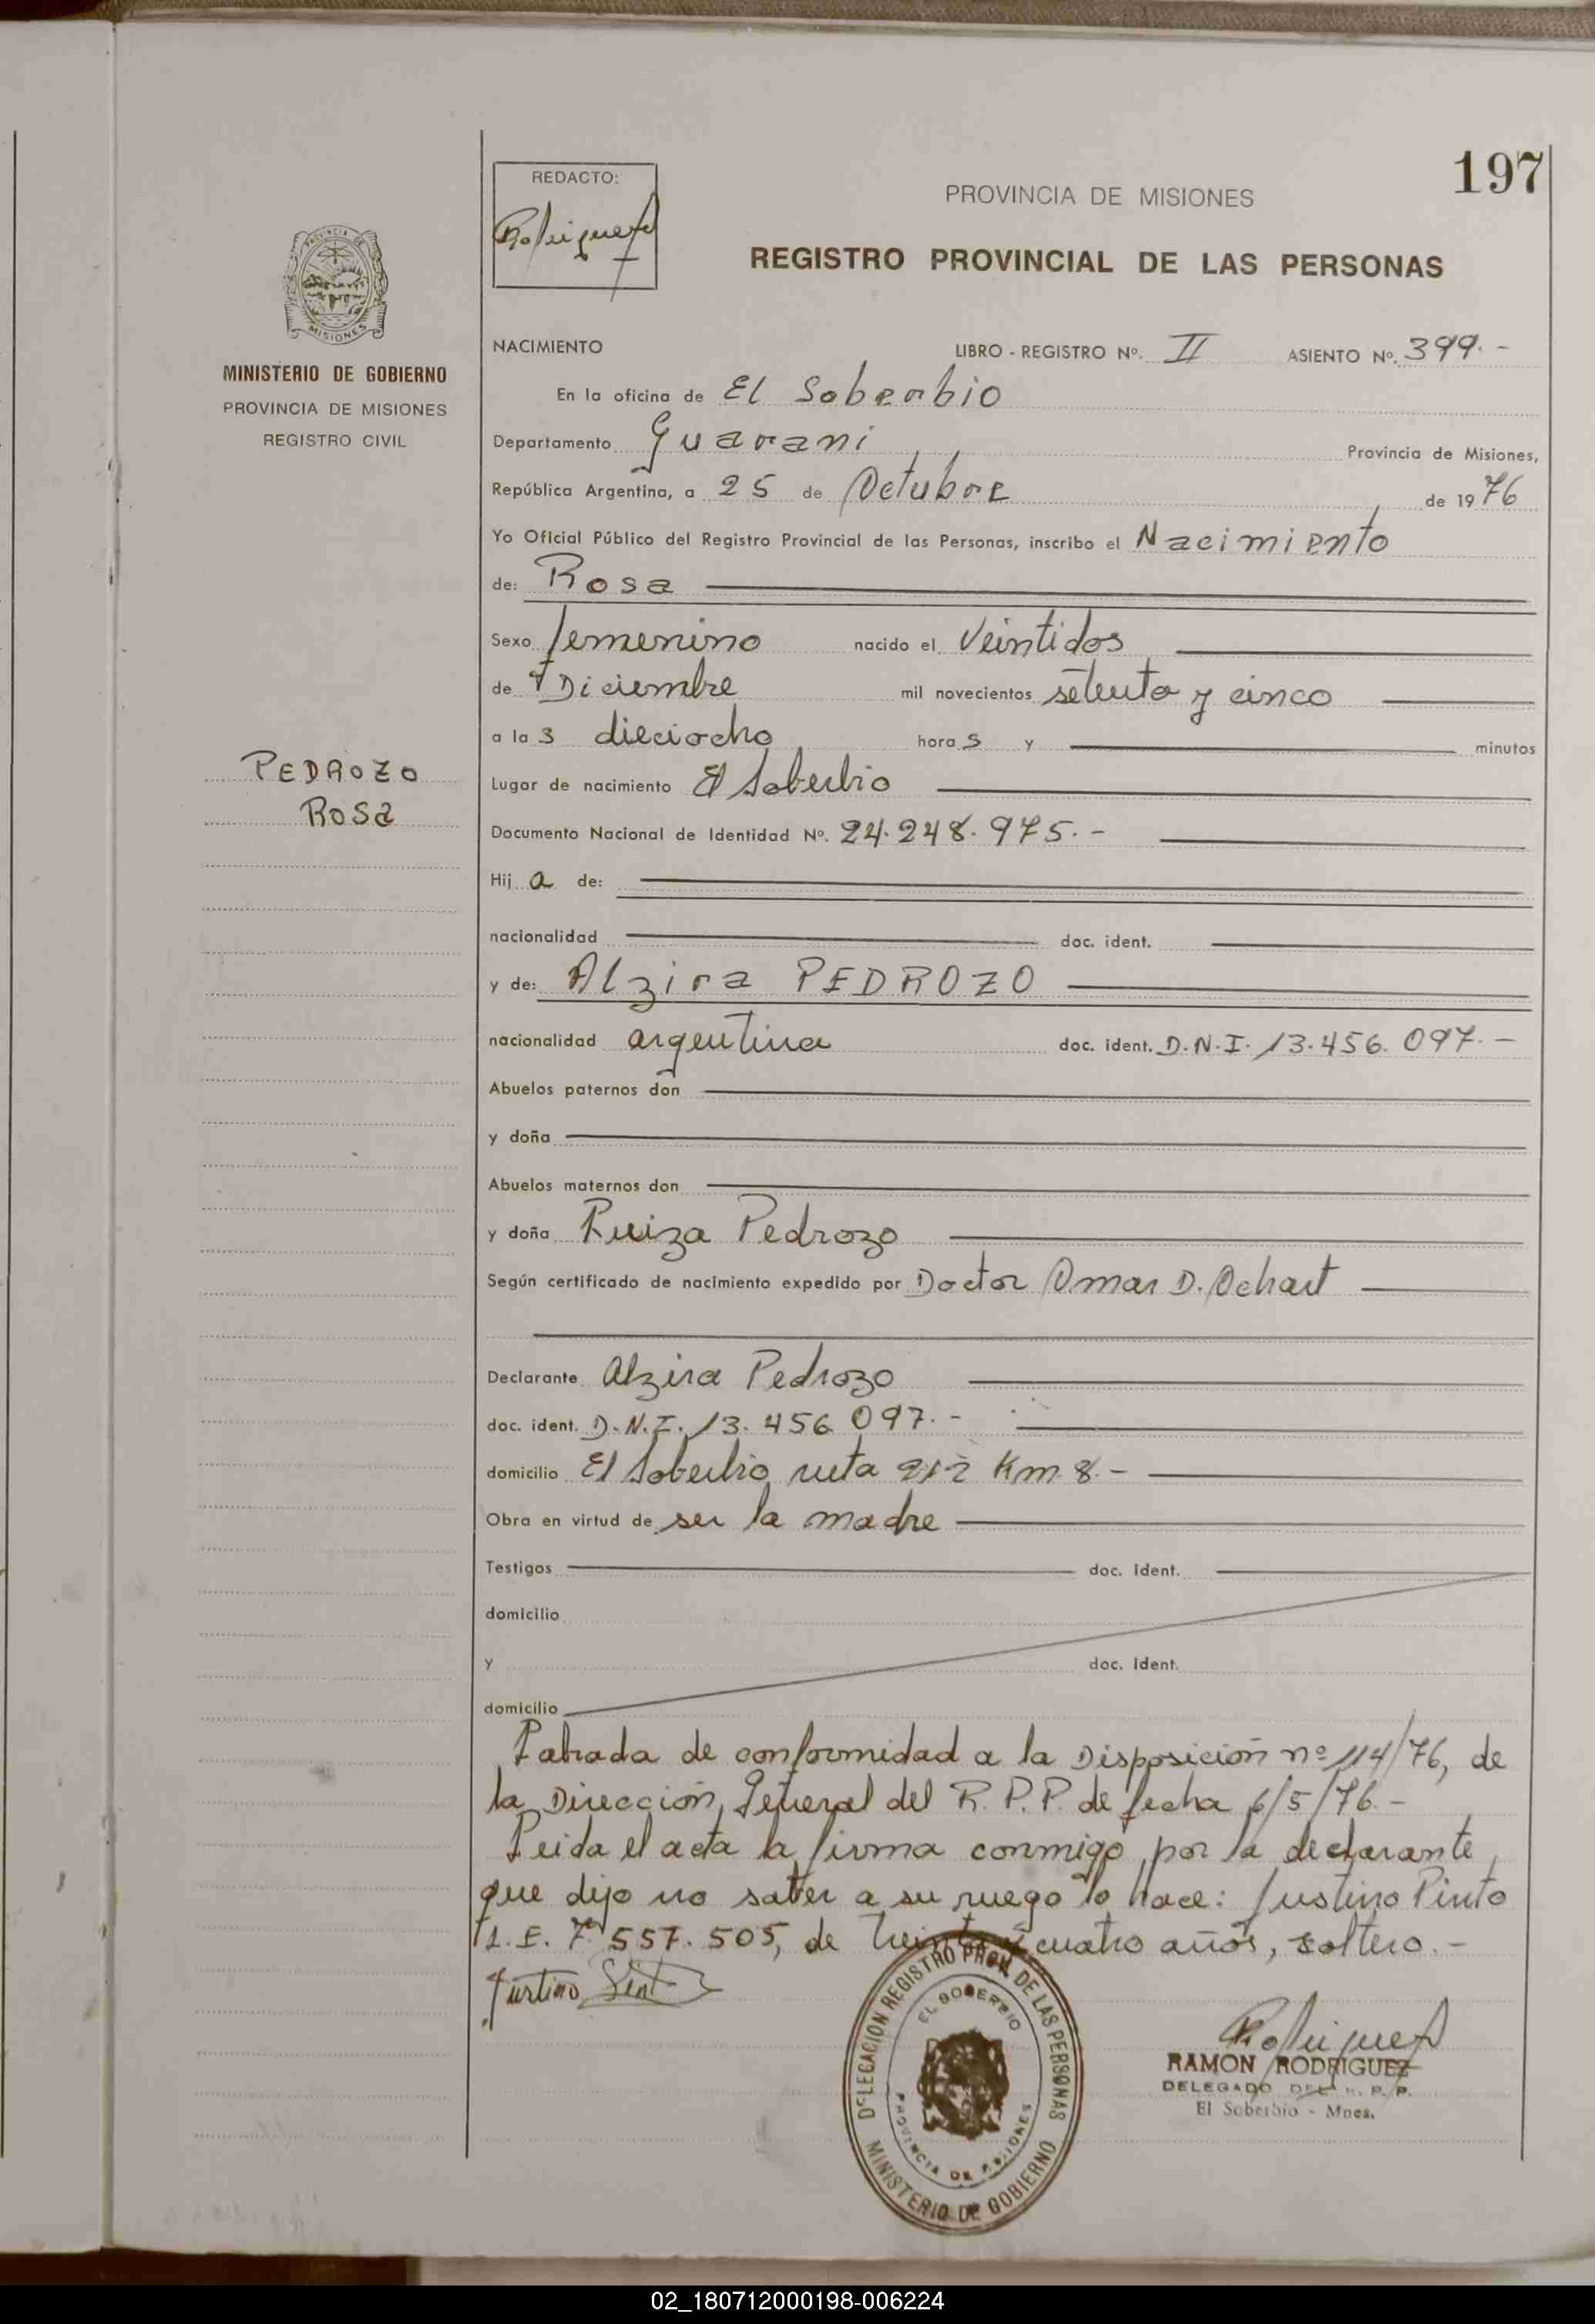 197
REDACTO:
Rodriguez
PROVINCIA DE MISIONES
REGISTRO PROVINCIAL DE LAS PERSONAS
PROVINCIA DE
MISIONES
MINISTERIO DE GOBIERNO
PROVINCIA DE MISIONES
REGISTRO CIVIL
PEDROZO
ROSA
NACIMIENTO LIBRO - REGISTRO Nº. II ASIENTO Nº. 399.-
En la oficina de El Soberbio
Departamento Guarani Provincia de Misiones,
República Argentina, a 25 de Octubre de 1976
Yo Oficial Público del Registro Provincial de las Personas, inscribo el Nacimiento
de: Rosa
Sexo femenino nacido el Veintidos
de Diciembre mil novecientos setenta y cinco
a las dieciocho horas y minutos
Lugar de nacimiento El Soberbio
Documento Nacional de Identidad Nº. 24.248.975.-
Hija de:
nacionalidad doc. ident.
y de: Alzira PEDROZO
nacionalidad argentina doc. ident. D.N.I. 13.456.097.-
Abuelos paternos don
y doña
Abuelos maternos don
y doña Ruiza Pedrozo
Según certificado de nacimiento expedido por Doctor Omar D. Ochart
Declarante Alzira Pedrozo
doc. ident. D.N.I. 13.456.097.-
domicilio El Soberbio, ruta 212 Km 8.-
Obra en virtud de ser la madre
Testigos doc. ident.
domicilio
y doc. ident.
domicilio
Labrada de conformidad a la Disposición nº 114/76, de
la Dirección General del R.P.P. de fecha 6/5/76.-
Leida el acta la firma conmigo, por la declarante,
que dijo no saber a su ruego lo hace: Justino Pinto
L.E. 7.557.505, de treinta y cuatro años, soltero.-
Justino
DELEGACION REGISTRO PROV. DE LAS PERSONAS
EL SOBERBIO
PROVINCIA DE MISIONES
MINISTERIO DE GOBIERNO
Rodriguez
RAMON RODRIGUEZ
DELEGADO DEL R. P. P.
El Soberbio - Mnes.
02_180712000198-006224